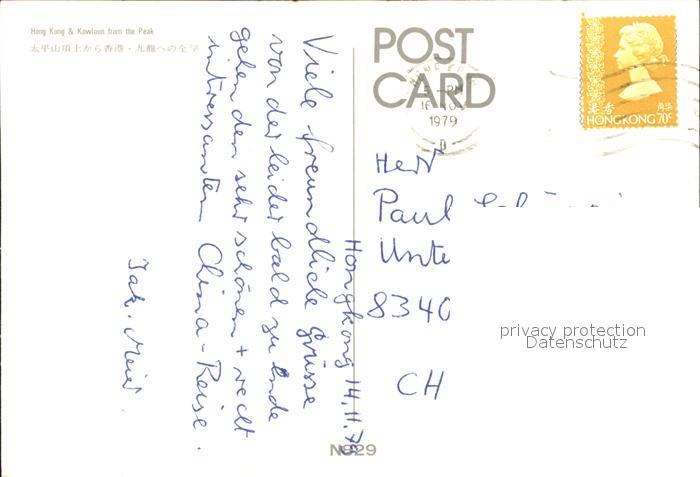 Hong Kong & Kowloon from the Peak
太平山頂上から香港・九龍への全
POST
CARD
5 - PM
16
1979
香港
HONG KONG 70c
Hongkong 14.11.79
Viele freundliche Grüsse
von der leider bald zu Ende
gehenden sehr schönen + recht
intressanten China-Reise.
Jak. Meier.
Herr
Paul
Unte
8340
CH
privacy protection
Datenschutz
N829